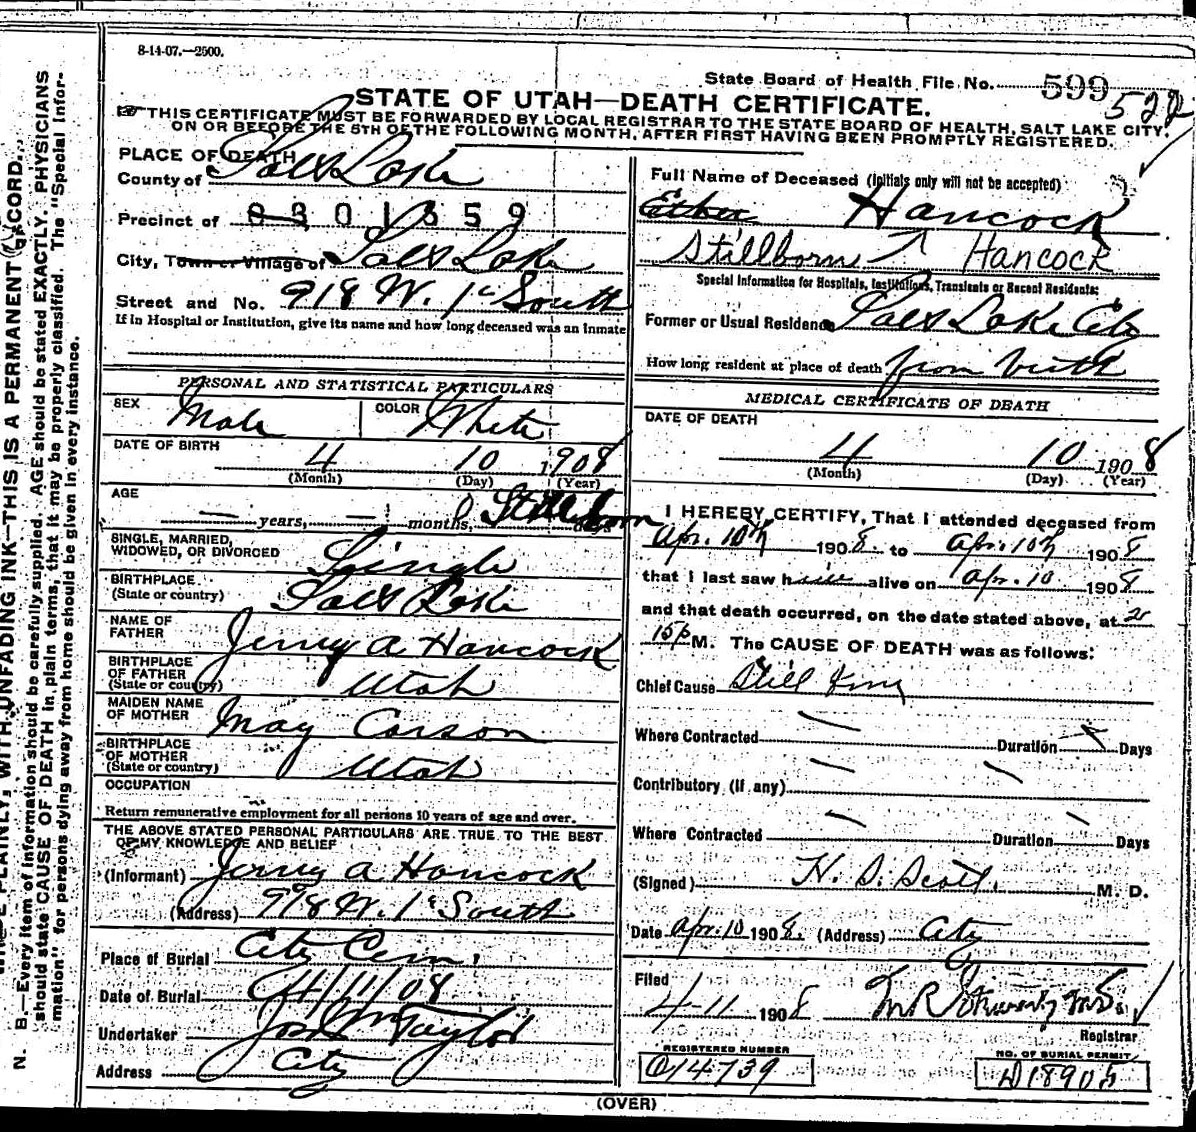 8-14-07.—2500.
State Board of Health File No. 599
522
STATE OF UTAH—DEATH CERTIFICATE.
THIS CERTIFICATE MUST BE FORWARDED BY LOCAL REGISTRAR TO THE STATE BOARD OF HEALTH, SALT LAKE CITY,
ON OR BEFORE THE 5TH OF THE FOLLOWING MONTH, AFTER FIRST HAVING BEEN PROMPTLY REGISTERED.
PLACE OF DEATH
County of Salt Lake
Precinct of 0301559
City, Town or Village of Salt Lake
Street and No. 918 W. 1st South
If in Hospital or Institution, give its name and how long deceased was an inmate
PERSONAL AND STATISTICAL PARTICULARS
SEX Male COLOR White
DATE OF BIRTH
4 10 1908
(Month) (Day) (Year)
AGE
— years, — months, Stillborn days
SINGLE, MARRIED,
WIDOWED, OR DIVORCED Single
BIRTHPLACE
(State or country) Salt Lake
NAME OF
FATHER Jerry A Hancock
BIRTHPLACE
OF FATHER
(State or country) Utah
MAIDEN NAME
OF MOTHER May Carson
BIRTHPLACE
OF MOTHER
(State or country) Utah
OCCUPATION
Return remunerative employment for all persons 10 years of age and over.
THE ABOVE STATED PERSONAL PARTICULARS ARE TRUE TO THE BEST
OF MY KNOWLEDGE AND BELIEF
(Informant) Jerry A Hancock
(Address) 918 W. 1st South
Place of Burial City Cem.
Date of Burial 4/11/08
Undertaker Jos Wm Taylor
Address City
Full Name of Deceased (Initials only will not be accepted)
Hancock
Stillborn Hancock
Special Information for Hospitals, Institutions, Transients or Recent Residents:
Former or Usual Residence Salt Lake City
How long resident at place of death from birth
MEDICAL CERTIFICATE OF DEATH
DATE OF DEATH
4 10 1908
(Month) (Day) (Year)
I HEREBY CERTIFY, That I attended deceased from
Apr. 10th 1908. to Apr. 10th 1908
that I last saw h alive on Apr. 10 1908
and that death occurred, on the date stated above, at 2
15 p M. The CAUSE OF DEATH was as follows:
Chief Cause Still
Where Contracted — Duration Days
Contributory (if any) — —
Where Contracted — Duration — Days
(Signed) H. S. Scott. M. D.
Date Apr. 10 1908. (Address) City
Filed
4-11 1908
Registrar
REGISTERED NUMBER
O14739
NO. OF BURIAL PERMIT
D18905
(OVER)
N. B.—Every item of information should be carefully supplied. AGE should be stated EXACTLY. PHYSICIANS
should state CAUSE OF DEATH in plain terms, that it may be properly classified. The "Special Infor-
mation" for persons dying away from home should be given in every instance.
PLAINLY, WITH UNFADING INK—THIS IS A PERMANENT RECORD.